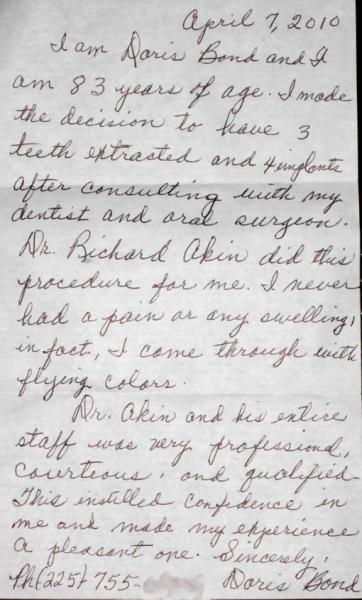 April 7, 2010
I am Doris Bond and I
am 83 years of age. I made
the decision to have 3
teeth extrasted and 4 implants
after consulting with my
dentist and oral surgeon.
Dr. Richard Akin did this
procedure for me. I never
had a pain or any swelling,
in fact, I come through with
flying colors.
Dr. Akin and his entire
staff was very professional,
courteous, and qualified.
This instilled confidence in
me and made my experience
a pleasant one. Sincerely,
Ph(225) 755- Doris Bond